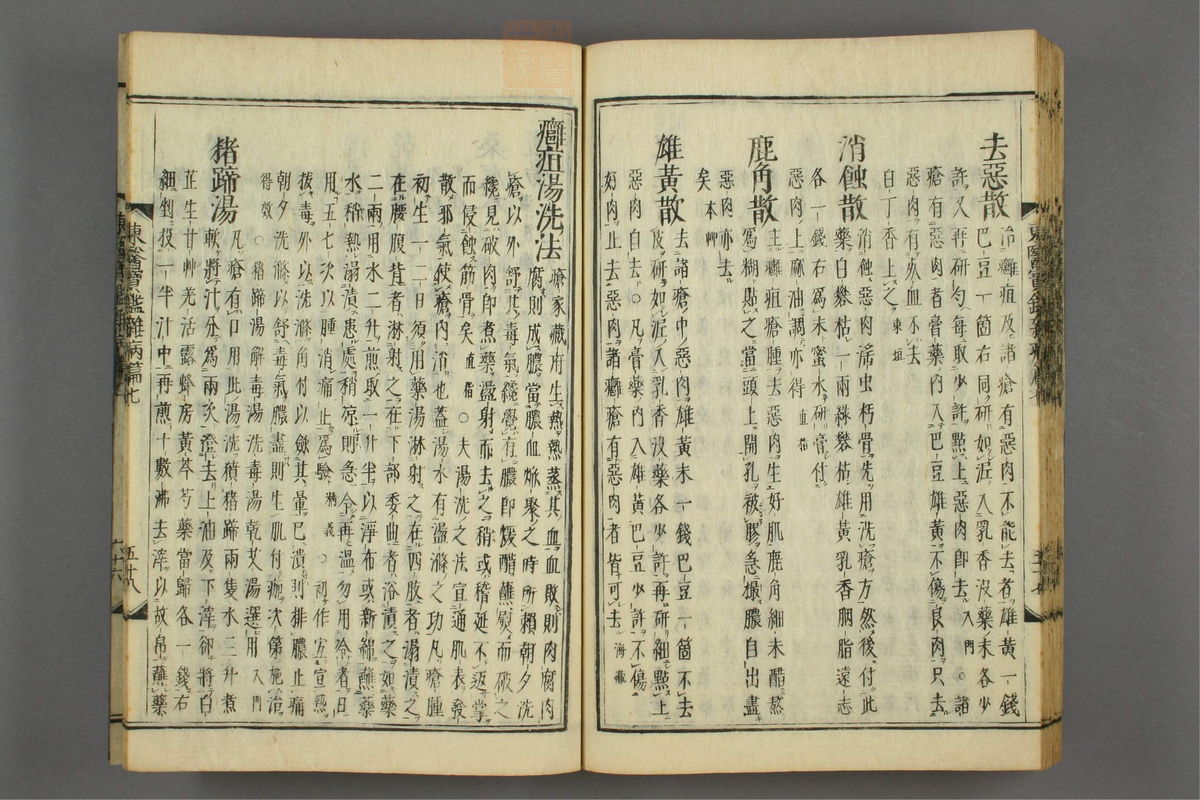 去惡散
治癰疽及諸瘡有惡肉不能去者雄黃一錢
巴豆一箇右同研如泥入乳香沒藥末各少
許又再研勻每取少許點上惡肉卽去入門○諸
瘡有惡肉者膏藥內入巴豆雄黃不傷良肉只去
惡肉有瘀血不去
白丁香上之東垣
消蝕散
消蝕惡肉淫虫朽骨先用洗瘡方然後付此
藥白礬枯一兩綠礬枯雄黃乳香臙脂遠志
各一錢右爲末蜜水硏膏付
惡肉上麻油調亦得直指
鹿角散
主癰疽瘡腫去惡肉生好肌鹿角細末醋熬
爲糊貼之當頭上開孔被膠急撮膿自出盡
惡肉亦去
矣本艸
雄黃散
去諸瘡中惡肉雄黃末一錢巴豆一箇不去
皮研如泥入乳香沒藥各少許再研細點上
惡肉自去○凡膏藥內入雄黃巴豆少許不傷
好肉止去惡肉諸癰瘡有惡肉者皆可去海藏
癰疽湯洗法
瘡家藏府生熱熱蒸其血血敗則肉腐肉
腐則成膿當膿血焮聚之時所賴朝夕洗
瘡以外舒其毒氣纔覺有膿卽煖醋蘸熨而破之
纔見破肉卽煮藥盪射而去之稍或稽延不返掌
而侵蝕筋骨矣直指○夫湯洗之法宜通肌表發
散邪氣使瘡內消也蓋湯水有盪滌之功凡瘡腫
初生一二日須用藥湯淋射之在四肢者溻漬之
在腰腹背者淋射之在下部委曲者浴漬之如藥
二兩用水二升煎取一升半以淨布或新綿蘸藥
水稍熱溻漬患處稍凉則急令再溫勿用冷者日
用五七次以腫消痛止爲驗精義○初作宜宣熱
拔毒外以洗滌角付以斂其暈已潰則排膿止痛
朝夕洗滌以舒毒氣膿盡則生肌付痂次第施治
得效○猪蹄湯解毒湯洗毒湯乾艾湯選用入門
猪蹄湯
凡瘡有口用此湯洗㹠猪蹄兩隻水三升煮
軟將汁分爲兩次澄去上油及下滓卻將白
芷生甘艸羌活露蜂房黃芩芍藥當歸各一錢右
細剉投一半汁中再煎十數沸去滓以故帛蘸藥
東醫寶鑑雜病篇七
五十八